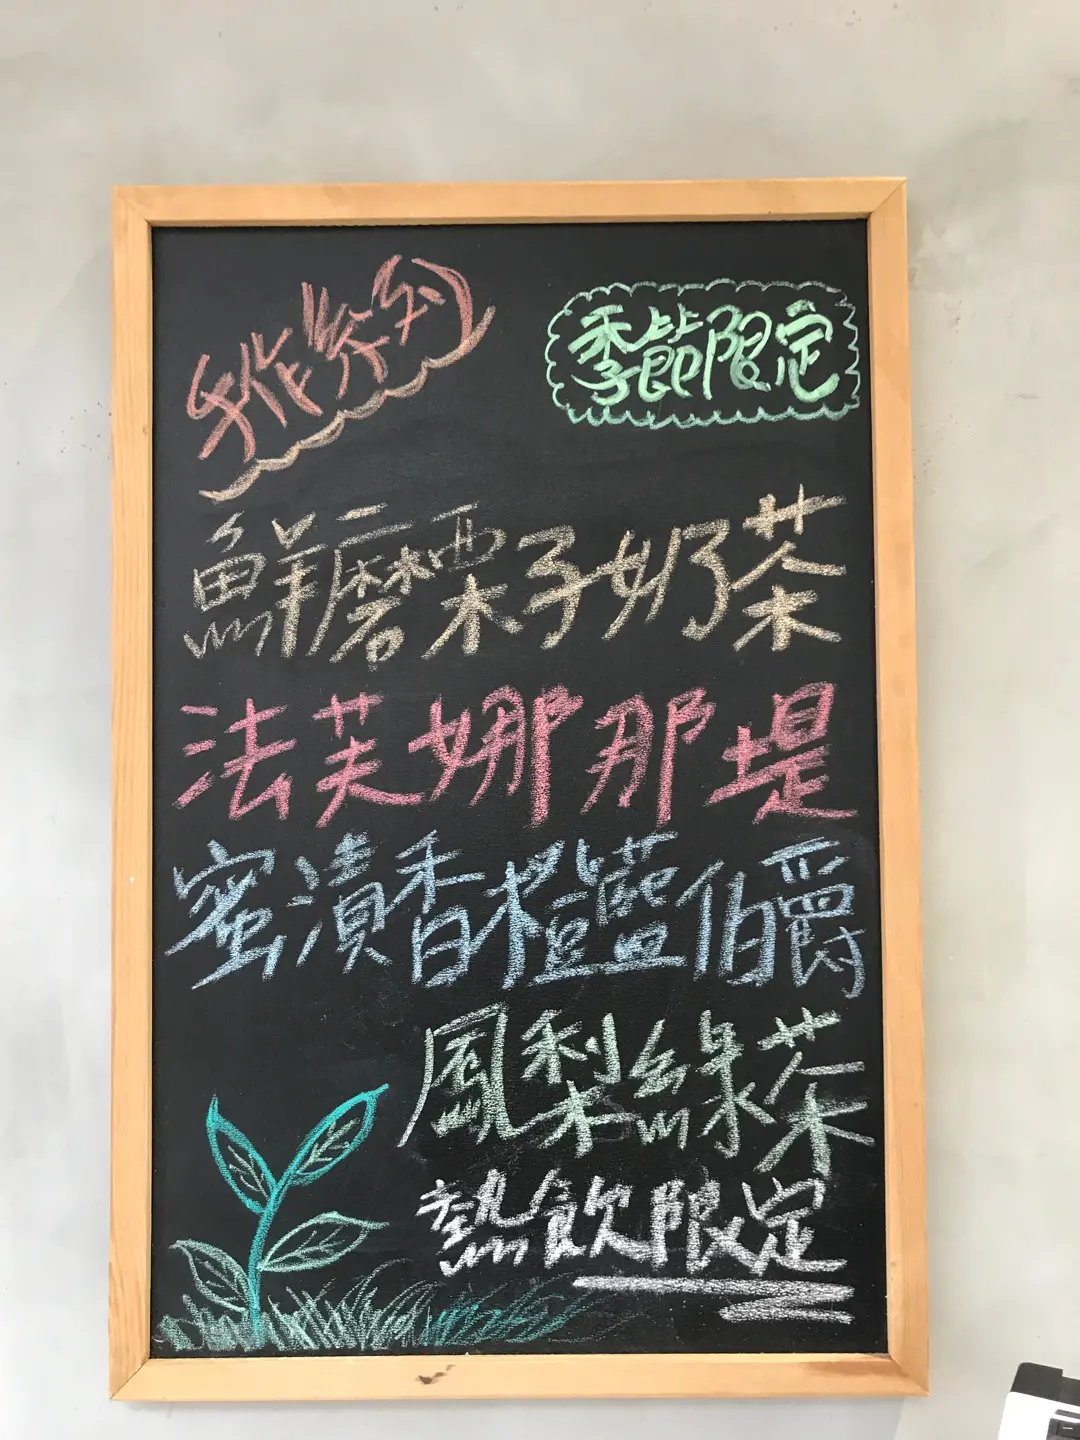 手作系列
季節限定
鮮磨栗子奶茶
法芙娜那堤
蜜漬香橙藍伯爵
鳳梨綠茶
熱飲限定